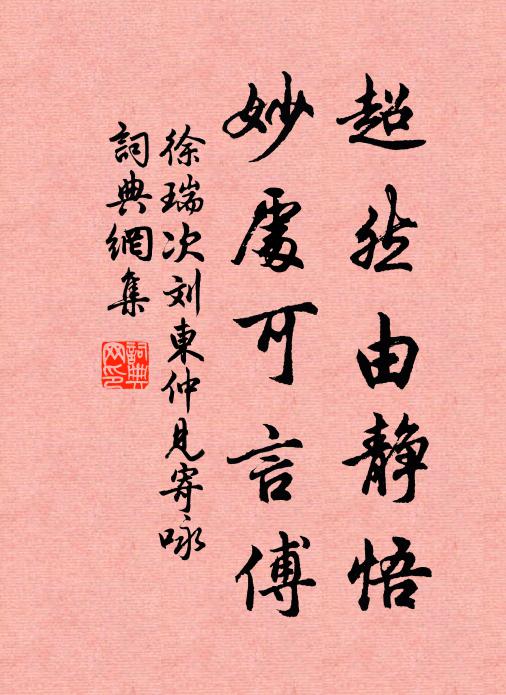 超然由静悟
妙處可言傅
徐瑞次刘東仲見寄咏
詞典網集
詞典網印